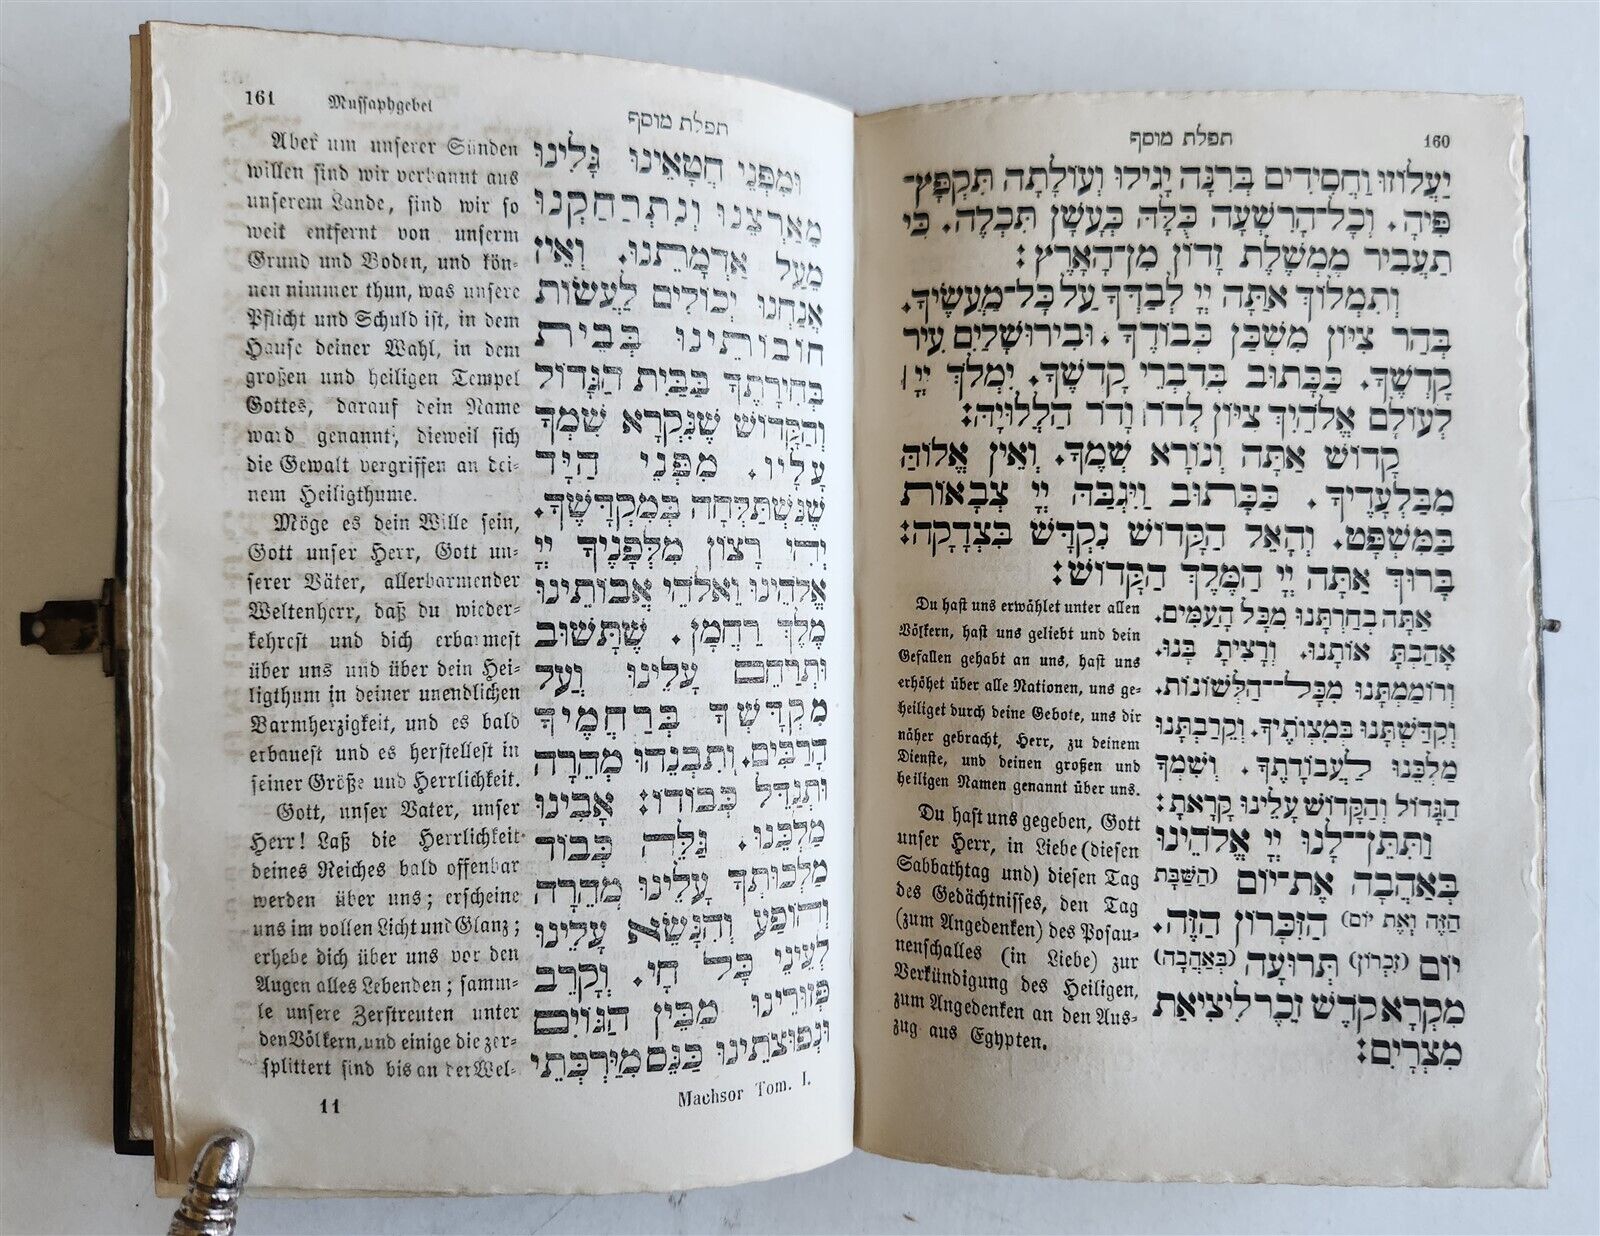 תפלת מוסף
160
יַעֲלוֹזוּ וַחֲסִידִים בְּרִנָּה יָגִילוּ וְעוֹלָתָה תִּקְפָּץ־
פִּיהָ. וְכָל־הָרִשְׁעָה כֻּלָּהּ כְּעָשָׁן תִּכְלֶה. כִּי
תַעֲבִיר מֶמְשֶׁלֶת זָדוֹן מִן־הָאָרֶץ:
וְתִמְלוֹךְ אַתָּה יְיָ לְבַדֶּךָ עַל כָּל־מַעֲשֶׂיךָ.
בְּהַר צִיּוֹן מִשְׁכַּן כְּבוֹדֶךָ. וּבִירוּשָׁלַיִם עִיר
קָדְשֶׁךָ. כַּכָּתוּב בְּדִבְרֵי קָדְשֶׁךָ. יִמְלֹךְ יְיָ
לְעוֹלָם אֱלֹהַיִךְ צִיּוֹן לְדֹר וָדֹר הַלְלוּיָהּ:
קָדוֹשׁ אַתָּה וְנוֹרָא שְׁמֶךָ. וְאֵין אֱלוֹהַּ
מִבַּלְעָדֶיךָ. כַּכָּתוּב וַיִּגְבַּהּ יְיָ צְבָאוֹת
בַּמִּשְׁפָּט. וְהָאֵל הַקָּדוֹשׁ נִקְדַּשׁ בִּצְדָקָה:
בָּרוּךְ אַתָּה יְיָ הַמֶּלֶךְ הַקָּדוֹשׁ:
אַתָּה בְחַרְתָּנוּ מִכָּל הָעַמִּים.
אָהַבְתָּ אוֹתָנוּ. וְרָצִיתָ בָּנוּ.
וְרוֹמַמְתָּנוּ מִכָּל־הַלְּשׁוֹנוֹת.
וְקִדַּשְׁתָּנוּ בְּמִצְוֹתֶיךָ. וְקֵרַבְתָּנוּ
מַלְכֵּנוּ לַעֲבוֹדָתֶךָ. וְשִׁמְךָ
הַגָּדוֹל וְהַקָּדוֹשׁ עָלֵינוּ קָרָאתָ:
וַתִּתֶּן־לָנוּ יְיָ אֱלֹהֵינוּ
בְּאַהֲבָה אֶת־יוֹם (הַשַּׁבָּת
הַזֶּה וְאֶת יוֹם) הַזִּכָּרוֹן הַזֶּה.
יוֹם (זִכְרוֹן) תְּרוּעָה (בְּאַהֲבָה)
מִקְרָא קֹדֶשׁ זֵכֶר לִיצִיאַת
מִצְרָיִם:
Du hast uns erwählet unter allen
Völkern, hast uns geliebt und dein
Gefallen gehabt an uns, hast uns
erhöhet über alle Nationen, uns ge-
heiliget durch deine Gebote, uns dir
näher gebracht, Herr, zu deinem
Dienste, und deinen großen und
heiligen Namen genannt über uns.
Du hast uns gegeben, Gott
unser Herr, in Liebe (diesen
Sabbathtag und) diesen Tag
des Gedächtnisses, den Tag
(zum Angedenken) des Posau-
nenschalles (in Liebe) zur
Verkündigung des Heiligen,
zum Angedenken an den Aus-
zug aus Egypten.
161
Mussaphgebet
תפלת מוסף
וּמִפְּנֵי חֲטָאֵינוּ גָּלִינוּ
מֵאַרְצֵנוּ וְנִתְרַחַקְנוּ
מֵעַל אַדְמָתֵנוּ. וְאֵין
אֲנַחְנוּ יְכוֹלִים לַעֲשׂוֹת
חוֹבוֹתֵינוּ בְּבֵית
בְּחִירָתֶךָ בַּבַּיִת הַגָּדוֹל
וְהַקָּדוֹשׁ שֶׁנִּקְרָא שִׁמְךָ
עָלָיו. מִפְּנֵי הַיָּד
שֶׁנִּשְׁתַּלְּחָה בְּמִקְדָּשֶׁךָ.
וִיְהִי רָצוֹן מִלְּפָנֶיךָ יְיָ
אֱלֹהֵינוּ וֵאלֹהֵי אֲבוֹתֵינוּ
מֶלֶךְ רַחֲמָן. שֶׁתָּשׁוּב
וּתְרַחֵם עָלֵינוּ וְעַל
מִקְדָּשְׁךָ בְּרַחֲמֶיךָ
הָרַבִּים. וְתִבְנֵהוּ מְהֵרָה
וּתְגַדֵּל כְּבוֹדוֹ: אָבִינוּ
מַלְכֵּנוּ. גַּלֵּה כְּבוֹד
מַלְכוּתְךָ עָלֵינוּ מְהֵרָה
וְהוֹפַע וְהִנָּשֵׂא עָלֵינוּ
לְעֵינֵי כָּל חָי. וְקָרֵב
פְּזוּרֵינוּ מִבֵּין הַגּוֹיִם
וּנְפוּצֹתֵינוּ כַּנֵּס מִיַּרְכְּתֵי
Aber um unserer Sünden
willen sind wir verbannt aus
unserem Lande, sind wir so
weit entfernt von unserm
Grund und Boden, und kön-
nen nimmer thun, was unsere
Pflicht und Schuld ist, in dem
Hause deiner Wahl, in dem
großen und heiligen Tempel
Gottes, darauf dein Name
ward genannt, dieweil sich
die Gewalt vergriffen an dei-
nem Heiligthume.
Möge es dein Wille sein,
Gott unser Herr, Gott un-
serer Väter, allerbarmender
Weltenherr, daß du wieder-
kehrest und dich erbarmest
über uns und über dein Hei-
ligthum in deiner unendlichen
Barmherzigkeit, und es bald
erbauest und es herstellest in
seiner Größe und Herrlichkeit.
Gott, unser Vater, unser
Herr! Laß die Herrlichkeit
deines Reiches bald offenbar
werden über uns; erscheine
uns im vollen Licht und Glanz;
erhebe dich über uns vor den
Augen alles Lebenden; samm-
le unsere Zerstreuten unter
den Völkern, und einige die zer-
splittert sind bis an der Wel-
11
Machsor Tom. I.